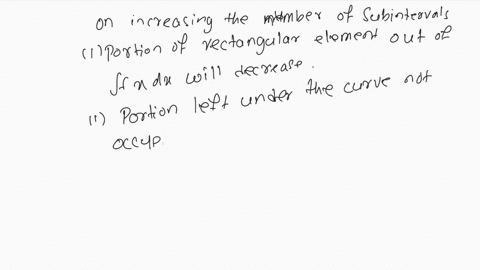 on increasing the number of Subintervals
(1) Portion of rectangular element out of
∫f x dx will decrease.
(11) Portion left under the curve not
occup